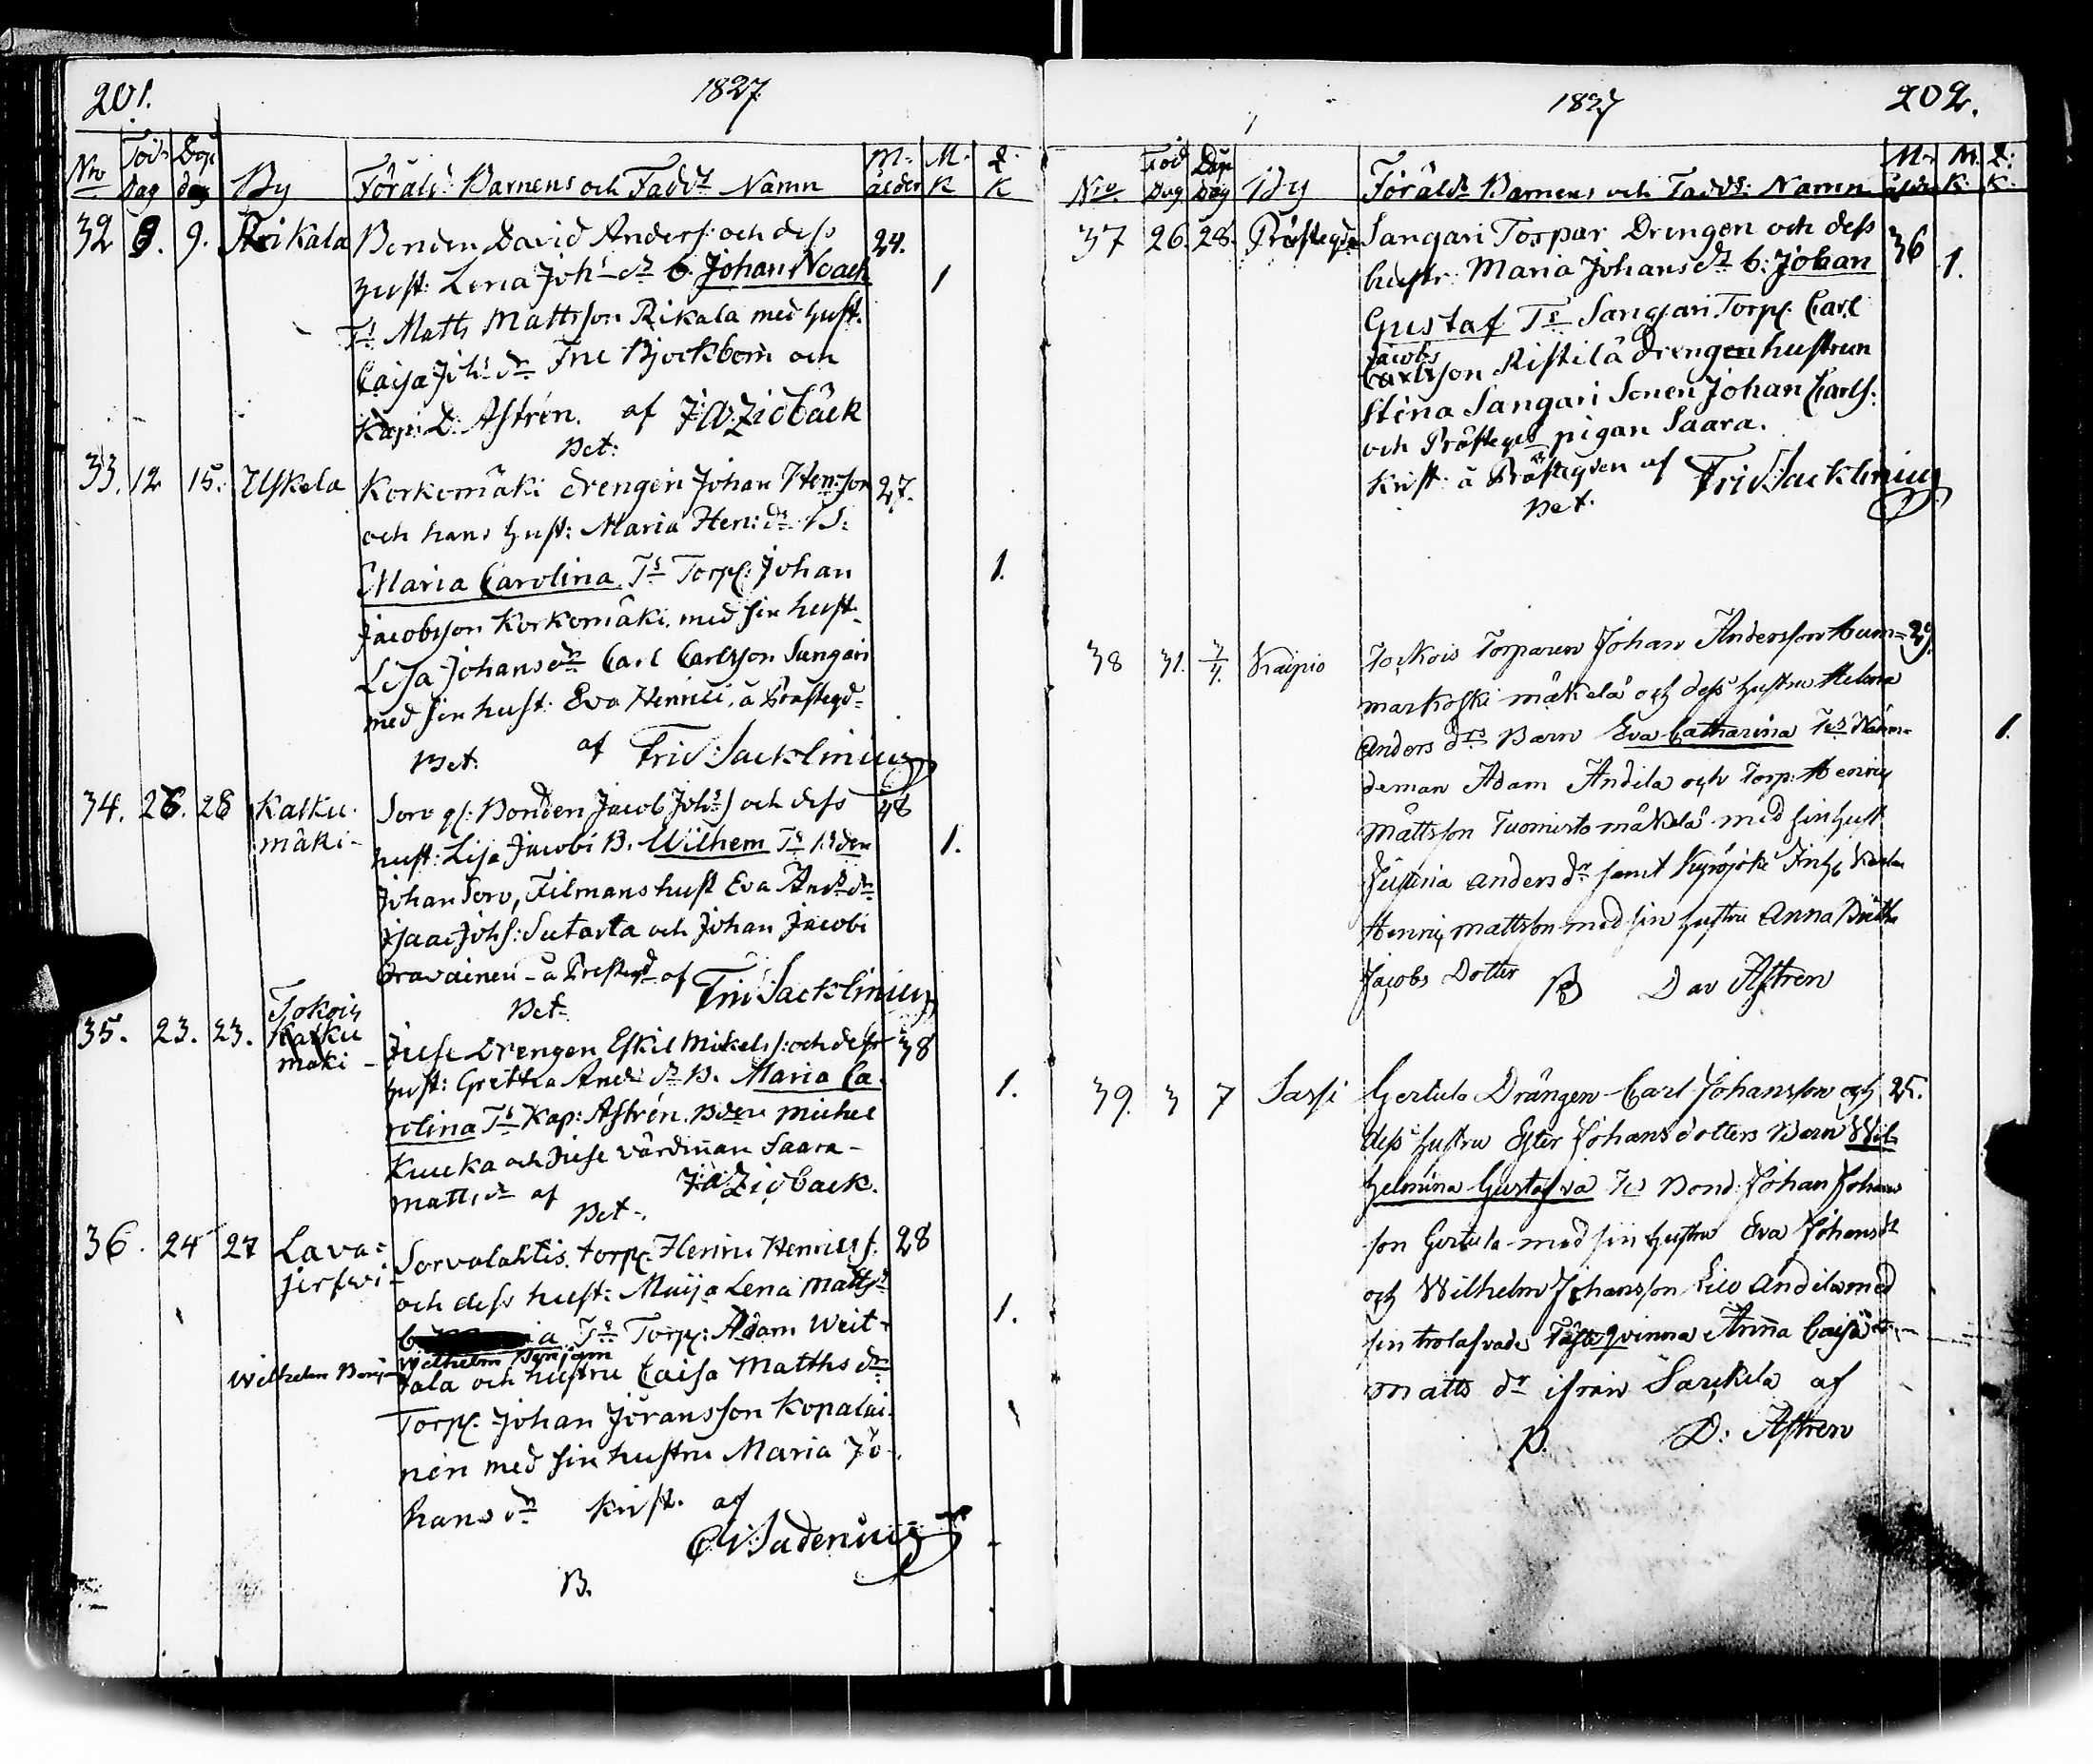 201. 1827
Nro Föd. Dag Döp. dag By Föräld: Barnens och Fadd: Namn M. ålder M. K Q. K
32 8. 9. Rikala Bonden David Anders: och dess 24.
hust: Lena Joh: dr b. Johan Noach 1
Ts Matts Mattsson Rikala med hust.
Caisa Joh: dr Fru Björkbom och
Kap: D. Astrén. af J:W:Zidbäck
Bet:
33. 12 15. Uskela Korkomäki drengen Johan Hen:son 27.
och hans hust: Maria Hen: dr B:
Maria Carolina. Ts Torp: Johan 1.
Jacobsson Korkomäki. med sin hust.
Lisa Johansdr Carl Carlsson Sangari
med sin hust. Eva Henrici, å Prästegd
Bet. af Frid: Sacklinius
34. 26. 28 Kalku- Sorv gl: Bonden Jacob Johs: och dess 48
mäki - hust: Lisa Jacobi B. Wilhem Ts Bden 1.
Johan Sorv, Tilmans hust Eva And: dr
Isaac Johs: Sutarla och Johan Jacobi
Oravainen å Prestegd af Frid Sacklinius
Bet
Jokois
35. 23. 23. Kalku Juse Drengen Eskil Mikels: och dess 38
mäki - hust: Gretha And: dr B. Maria Ca- 1.
rolina Ts Kap: Astrén. Bden Michel
Kuuka och Juse värdinnan Saara
Matts dr af J:W:Zidbäck.
Bet.
36. 24 27 Lava- Sorvalahtis torp: Henric Henrics s. 28
jerfwi - och dess hust: Maija Lena Matts:
b. a Ts Torp: Adam Weit- 1.
Wilhelm Benjam
Wilhelm Benj- Jala och hustru Caisa Matths dr
Torp. Johan Jöransson Kopalai-
nen med sin hustru Maria Jo-
hans dr Krist. af
C W Sadenius
B.
1827 202.
Nro. Föd Dag Döp Dag By Föräld: Barnens och Fadd: Namn M. ålder M. K. Q: K.
37 26. 28. Prästegd Sangari Torpar Drengen och dess 36
hustr: Maria Johans dr b: Johan 1.
Gustaf Ts Sangari Torp. Carl
Jacobs
Carlsson Ristilä drengen hustrun
Stina Sangari Sonen Johan Carls:
och Prästegds pigan Saara.
Krist. å Prästegden af Frid Sacklinius
Bet.
38 31. 3/4. Kaipio Jockois Torparen Johan Andersson Hum= 29.
markoski mäkelä och dess hustru Helena
Anders drs Barn Eva Catharina Ts Näm- 1.
deman Adam Andila och Torp: Henric
Mattsson Tuomisto mäkelä med sin hust
Justina Anders dr samt
Henric Mattsson med sin hustru Anna Britha
Jacobs Dotter B Dav Astren
39. 3 7 Sassi Gertula Drängen Carl Johansson och 25.
dess hustru Ester Johans dotters Barn Wil-
helmina Gustafva Ts Bond: Johan Johans
son Gertula med sin hustru Eva Johans dr
och Wilhelm Johansson Andila med
sin trolofvade qvinna Anna Caisa
Matts dr ifrån Särkela af
B. D: Astren